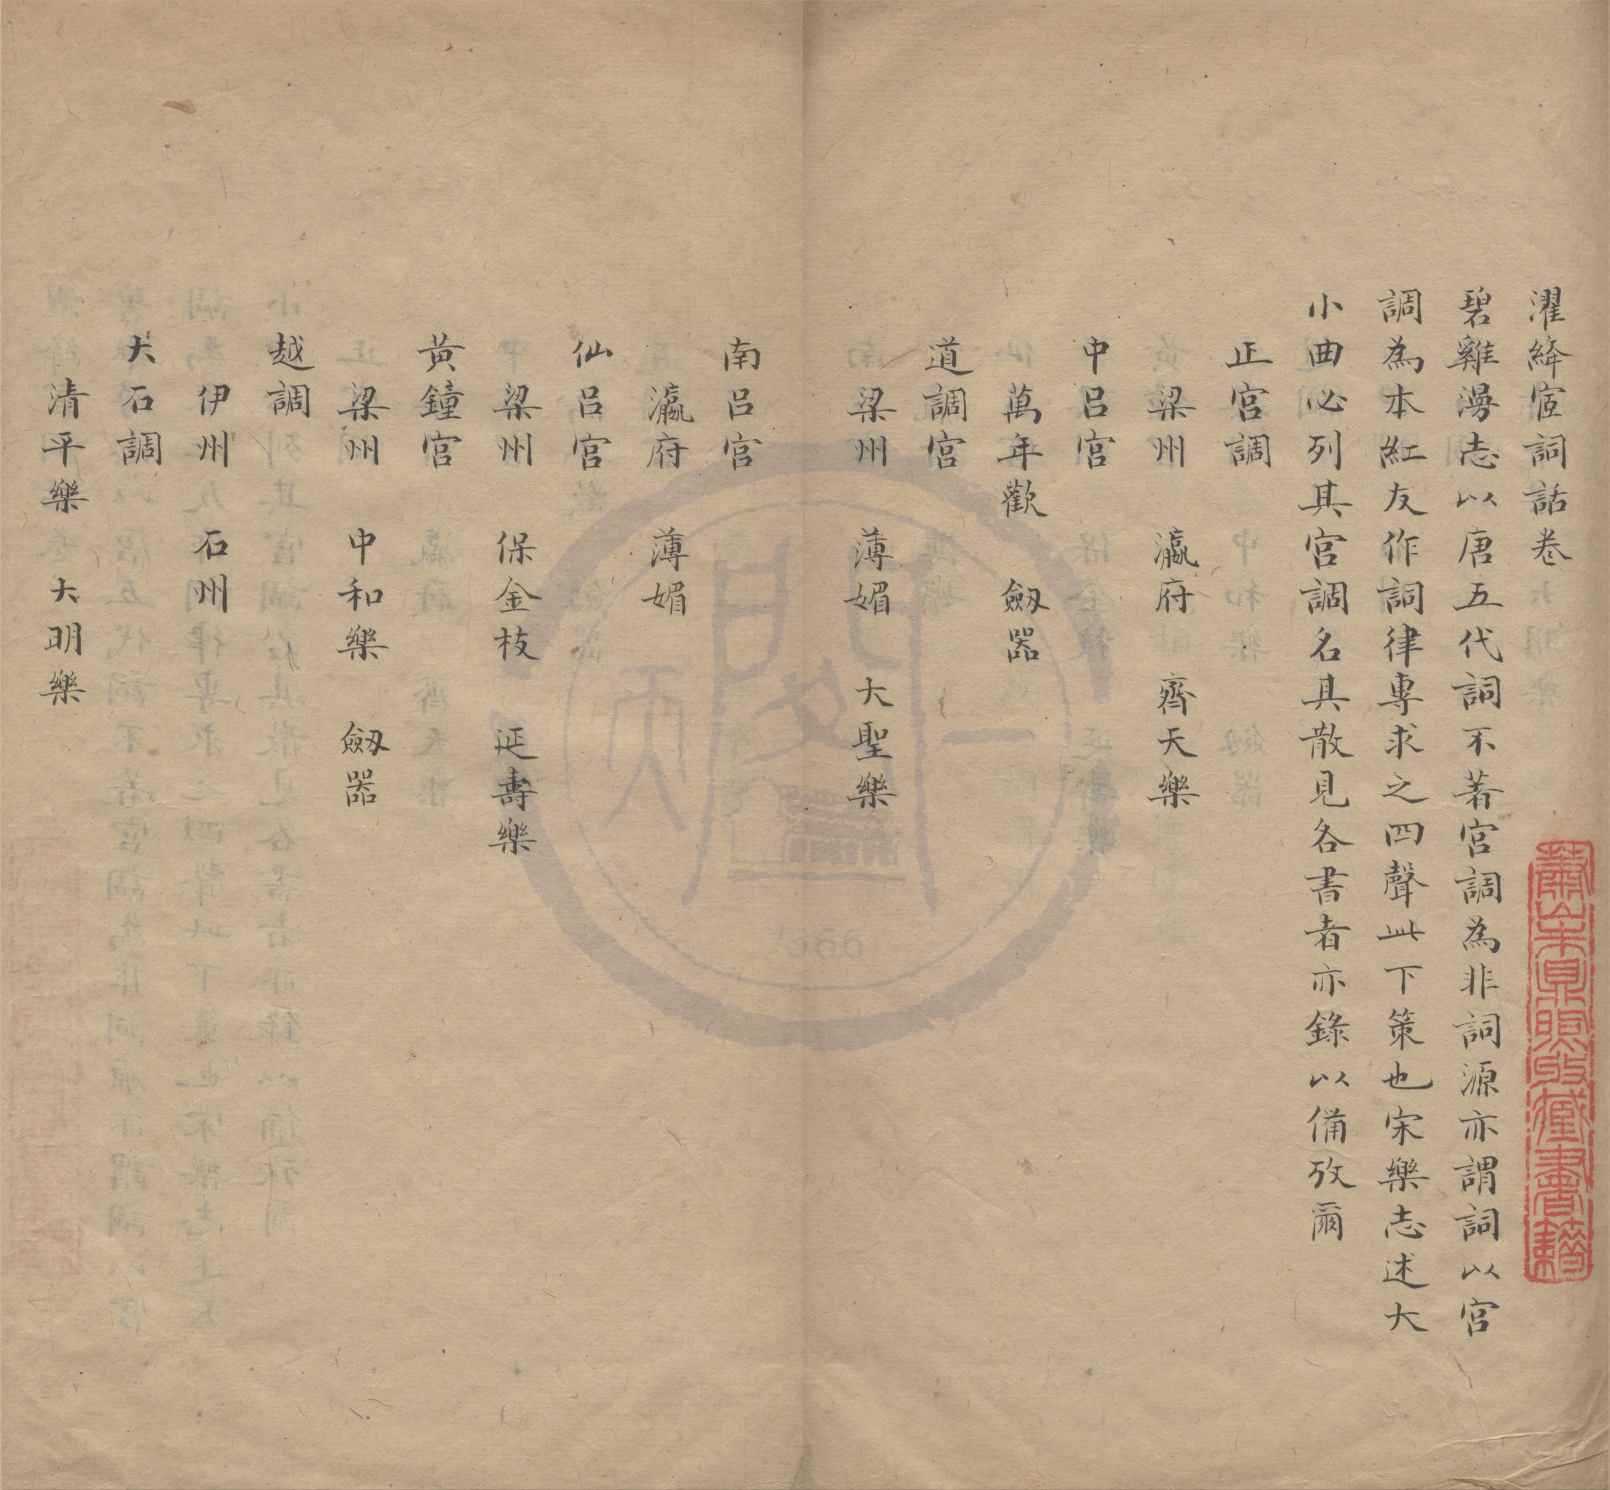 濯絳宦詞話卷
碧雞漫志以唐五代詞不著宮調為非詞源亦謂詞以宮
調為本紅友作詞律專求之四聲此下策也宋樂志述大
小曲必列其宮調名其散見各書者亦錄以備攷爾
正宮調
梁州　瀛府　齊天樂
中呂宮
萬年歡　劔器
道調宮
梁州　薄媚　大聖樂
南呂宮
瀛府　薄媚
仙呂宮
梁州　保金枝　延壽樂
黃鐘宮
梁州　中和樂　劔器
越調
伊州　石州
大石調
清平樂　大明樂
蕭山朱鼎煦收藏書籍
天一閣
1566